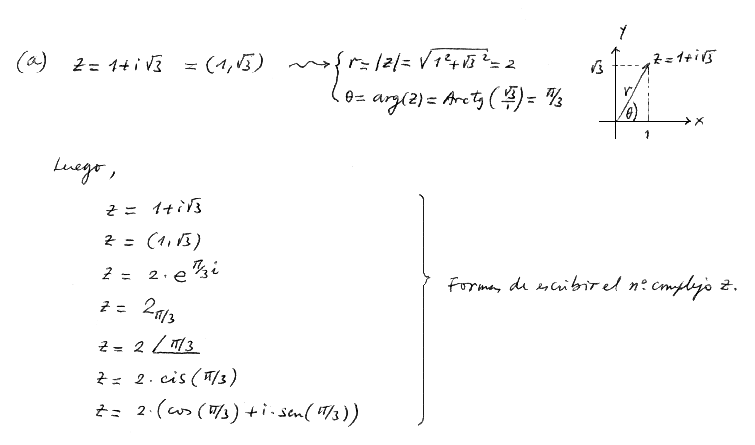 (a) z = 1+i√3 = (1,√3) ⇝ { r = |z| = √(1²+√3²) = 2
θ = arg(z) = Arctg(√3/1) = π/3
Y
√3
z = 1+i√3
r
θ
X
1
Luego,
z = 1+i√3
z = (1,√3)
z = 2·e^(π/3 i)
z = 2_(π/3)
z = 2 ∠π/3
z = 2·cis(π/3)
z = 2·(cos(π/3)+i·sen(π/3))
} Formas de escribir el nº complejo z.